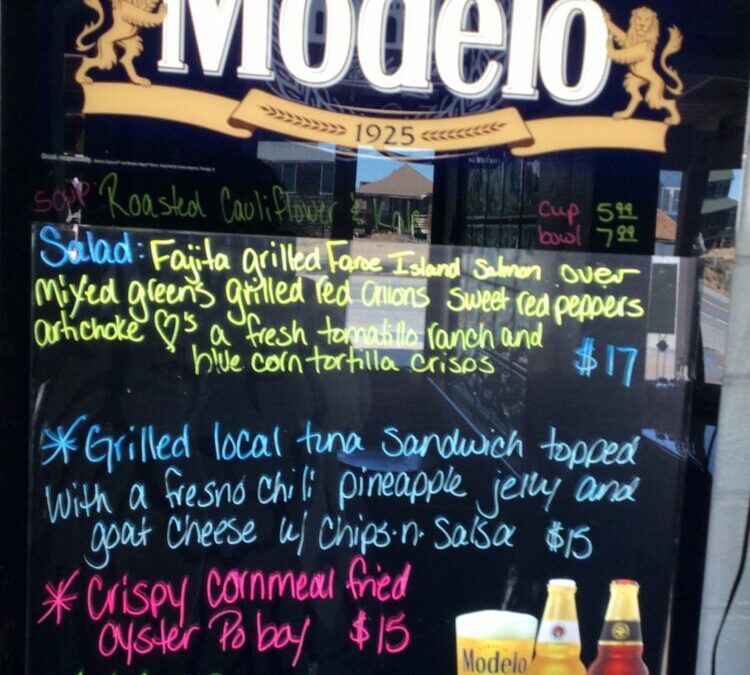 Modelo
1925
Soup: Roasted Cauliflower & Kale
Cup 5.99
bowl 7.99
Salad: Fajita grilled Faroe Island Salmon over
mixed greens grilled red onions sweet red peppers
artichoke ♡'s a fresh tomatillo ranch and
blue corn tortilla crisps $17
* Grilled local tuna Sandwich topped
with a fresno chili pineapple jelly and
goat cheese w/ chips.n.Salsa $15
* Crispy cornmeal fried
oyster Po boy $15
Modelo